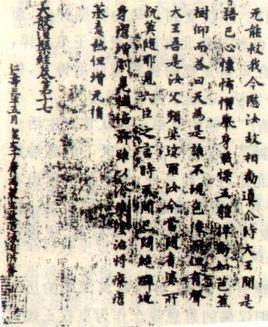 无能救我今愍汝故相勸導介時大王聞是
語已心懷怖懼舉身戰慄五體掉動如芭蕉
樹仰而荅曰天為是誰不現色像而但有聲
大王吾是汝父頻婆娑羅汝今當隨耆婆所
說莫隨耶見六臣之言時王聞已悶絕躄地
身瘡增劇臭穢倍前雖以冷藥塗治將療瘡
蒸毒熱但增无損
大般涅槃經卷第十七
仁壽三年